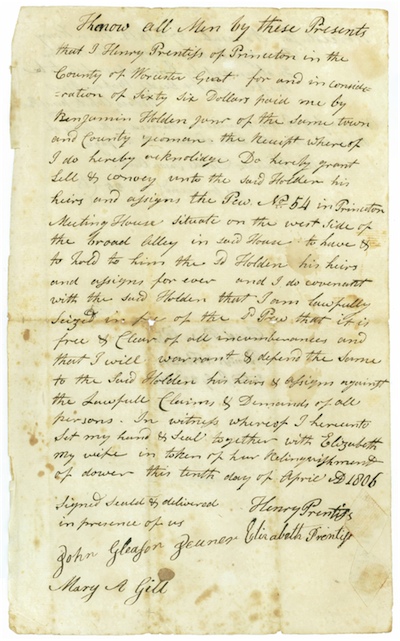 Know all Men by these Presents
that I Henry Prentiss of Princeton in the
County of Worcester Gent for and in conside
=ration of Sixty Six Dollars paid me by
Benjamin Holden junr of the same town
and County yeoman the Receipt whereof
I do hereby acknolidge Do hereby grant
Sell & convey unto the said Holden his
heirs and assigns the Pew No 54 in Princeton
Meeting House situate on the west side of
the broad Alley in said House to have &
to hold to him the sd Holden his heirs
and assigns for ever and I do covenant
with the said Holden that I am lawfully
Seized in fee of the sd Pew that it is
free & Clear of all incumberances and
that I will warrant & defend the Same
to the Said Holden his heirs & assigns against
the Lawfull Claims & Demands of all
persons. In witness whereof I hereunto
Set my hand & Seal together with Elizabeth
my wife in token of her Relinquishment
of dower this tenth day of April AD 1806
Signed Seald & delivered
in presence of us
Henry Prentiss
Elizabeth Prentiss
John Gleason
Mary A Gill